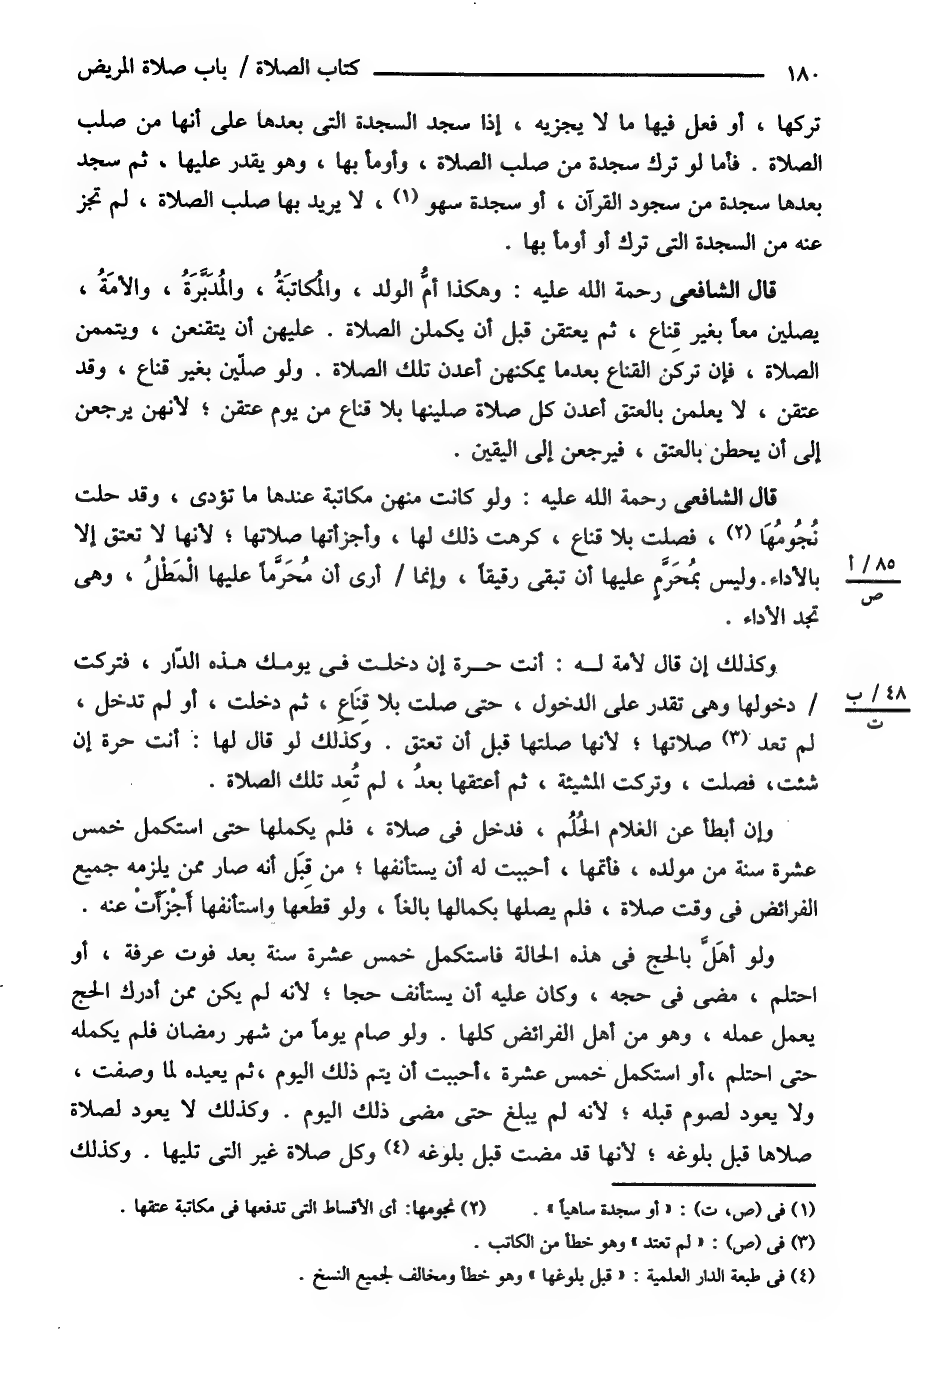 ١٨٠ كتاب الصلاة / باب صلاة المريض
تركها ، أو فعل فيها ما لا يجزيه ، إذا سجد السجدة التى بعدها على أنها من صلب
الصلاة . فأما لو ترك سجدة من صلب الصلاة ، وأومأ بها ، وهو يقدر عليها ، ثم سجد
بعدها سجدة من سجود القرآن ، أو سجدة سهو (١) ، لا يريد بها صلب الصلاة ، لم تجز
عنه من السجدة التى ترك أو أومأ بها .
قال الشافعى رحمة الله عليه : وهكذا أمُّ الولد ، والمُكاتبَةُ ، والمُدَبَّرَةُ ، والأمَةُ ،
يصلين معاً بغير قِناع ، ثم يعتقن قبل أن يكملن الصلاة . عليهن أن يتقنعن ، ويتممن
الصلاة ، فإن تركن القناع بعدما يمكنهن أعدن تلك الصلاة . ولو صلّين بغير قناع ، وقد
عتقن ، لا يعلمن بالعتق أعدن كل صلاة صلينها بلا قناع من يوم عتقن ؛ لأنهن يرجعن
إلى أن يحطن بالعتق ، فيرجعن إلى اليقين .
قال الشافعى رحمة الله عليه : ولو كانت منهن مكاتبة عندها ما تؤدى ، وقد حلت
نُجُومُهَا (٢) ، فصلت بلا قناع ، كرهت ذلك لها ، وأجزأتها صلاتها ؛ لأنها لا تعتق إلا
بالأداء. وليس بمُحَرَّمٍ عليها أن تبقى رقيقاً ، وإنما / أرى أن مُحَرَّماً عليها الْمَطْلُ ، وهى
٨٥ / أ
ص
تجد الأداء .
وكذلك إن قال لأمة لـه : أنت حـرة إن دخلـت فـى يومـك هـذه الدّار ، فتركت
/ دخولها وهى تقدر على الدخول ، حتى صلت بلا قِنَاع ، ثم دخلت ، أو لم تدخل ،
٤٨ / ب
ت
لم تعد (٣) صلاتها ؛ لأنها صلتها قبل أن تعتق . وكذلك لو قال لها : أنت حرة إن
شئت، فصلت ، وتركت المشيئة ، ثم أعتقها بعدُ ، لم تُعِد تلك الصلاة .
وإن أبطأ عن الغلام الحُلُم ، فدخل فى صلاة ، فلم يكملها حتى استكمل خمس
عشرة سنة من مولده ، فأتمها ، أحببت له أن يستأنفها ؛ من قِبَل أنه صار ممن يلزمه جميع
الفرائض فى وقت صلاة ، فلم يصلها بكمالها بالغاً ، ولو قطعها واستأنفها أَجْزَأَتْ عنه .
ولو أهَلَّ بالحج فى هذه الحالة فاستكمل خمس عشرة سنة بعد فوت عرفة ، أو
احتلم ، مضى فى حجه ، وكان عليه أن يستأنف حجا ؛ لأنه لم يكن ممن أدرك الحج
يعمل عمله ، وهو من أهل الفرائض كلها . ولو صام يوماً من شهر رمضان فلم يكمله
حتى احتلم ،أو استكمل خمس عشرة ،أحببت أن يتم ذلك اليوم ،ثم يعيده لما وصفت ،
ولا يعود لصوم قبله ؛ لأنه لم يبلغ حتى مضى ذلك اليوم . وكذلك لا يعود لصلاة
صلاها قبل بلوغه ؛ لأنها قد مضت قبل بلوغه (٤) وكل صلاة غير التى تليها . وكذلك
(١) فى (ص، ت) : « أو سجدة ساهياً » . (٢) نجومها: أى الأقساط التى تدفعها فى مكاتبة عتقها .
(٣) فى (ص) : « لم تعتد » وهو خطأ من الكاتب .
(٤) فى طبعة الدار العلمية : « قبل بلوغها » وهو خطأ ومخالف لجميع النسخ .